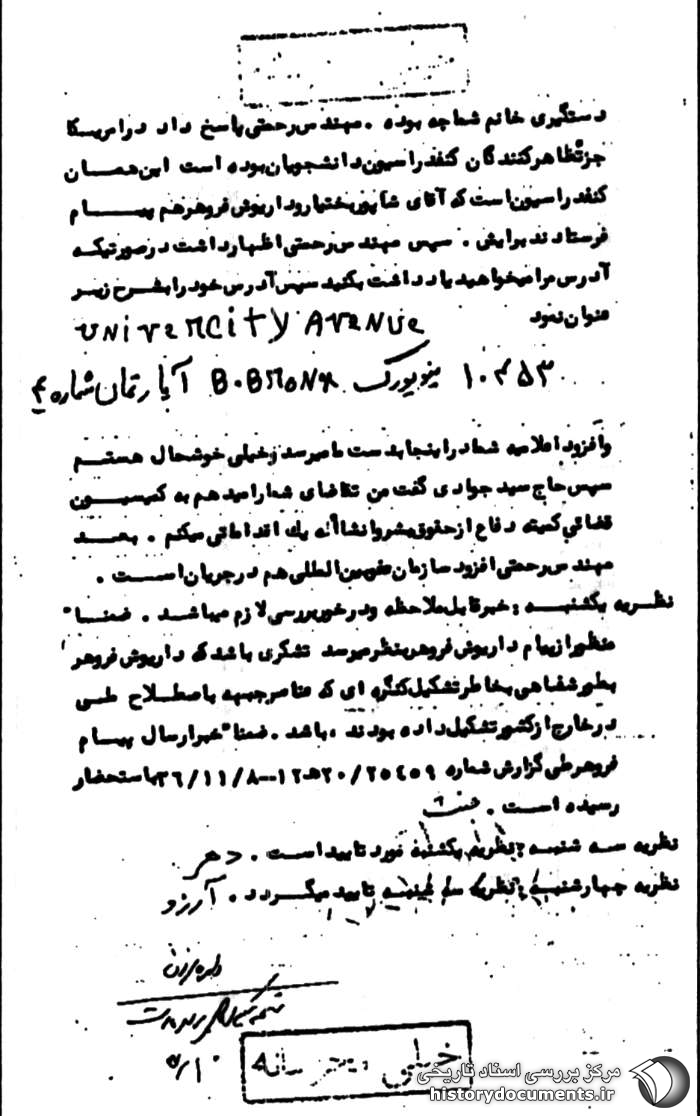 دستگیری خانم شما چه بوده . مهندس رحمتی پاسخ داد در امریکا
جزء تظاهرکنندگان کنفدراسیون دانشجویان بوده است این همان
کنفدراسیون است که آقای شاپور بختیار و داریوش فروهر هم پیام
فرستادند برایش . سپس مهندس رحمتی اظهار داشت در صورتیکه
آدرس مرا میخواهید یادداشت بکنید سپس آدرس خود را بشرح زیر
عنوان نمود
UNIVERCITY AVENUE
۱۰۴۵۳ نیویورک B.BRONX آپارتمان شماره ۴
وافزود اعلامیه شما در اینجا بدست ما میرسد و خیلی خوشحال هستیم
سپس حاج سید جوادی گفت من تقاضای شما را میدهم به کمیسیون
قضائی کمیته دفاع از حقوق بشر و انشاالله یك اقداماتی میکنم . بعد
مهندس رحمتی افزود سازمان عفو بین المللی هم در جریان است .
نظریه یکشنبه : خبر قابل ملاحظه و در خور بررسی لازم میباشد . ضمنا"
منظور از پیام داریوش فروهر بنظر میرسد تشکری باشد که داریوش فروهر
بطور شفاهی بخاطر تشکیل کنگره ای که عناصر جبهه باصطلاح ملی
در خارج از کشور تشکیل داده بودند ، باشد . ضمنا" خبر ارسال پیام
فروهر طی گزارش شماره ۲۵۴۵۹/ ۲۰ه۱۲ -- ۳۶/۱۱/۸ باستحضار
رسیده است .
نظریه سه شنبه : نظریه یکشنبه مورد تایید است . دهر
نظریه چهارشنبه : نظریه سه شنبه تایید میگردد . آرزو
خیلی محرمانه
مرکز بررسی اسناد تاریخی
historydocuments.ir